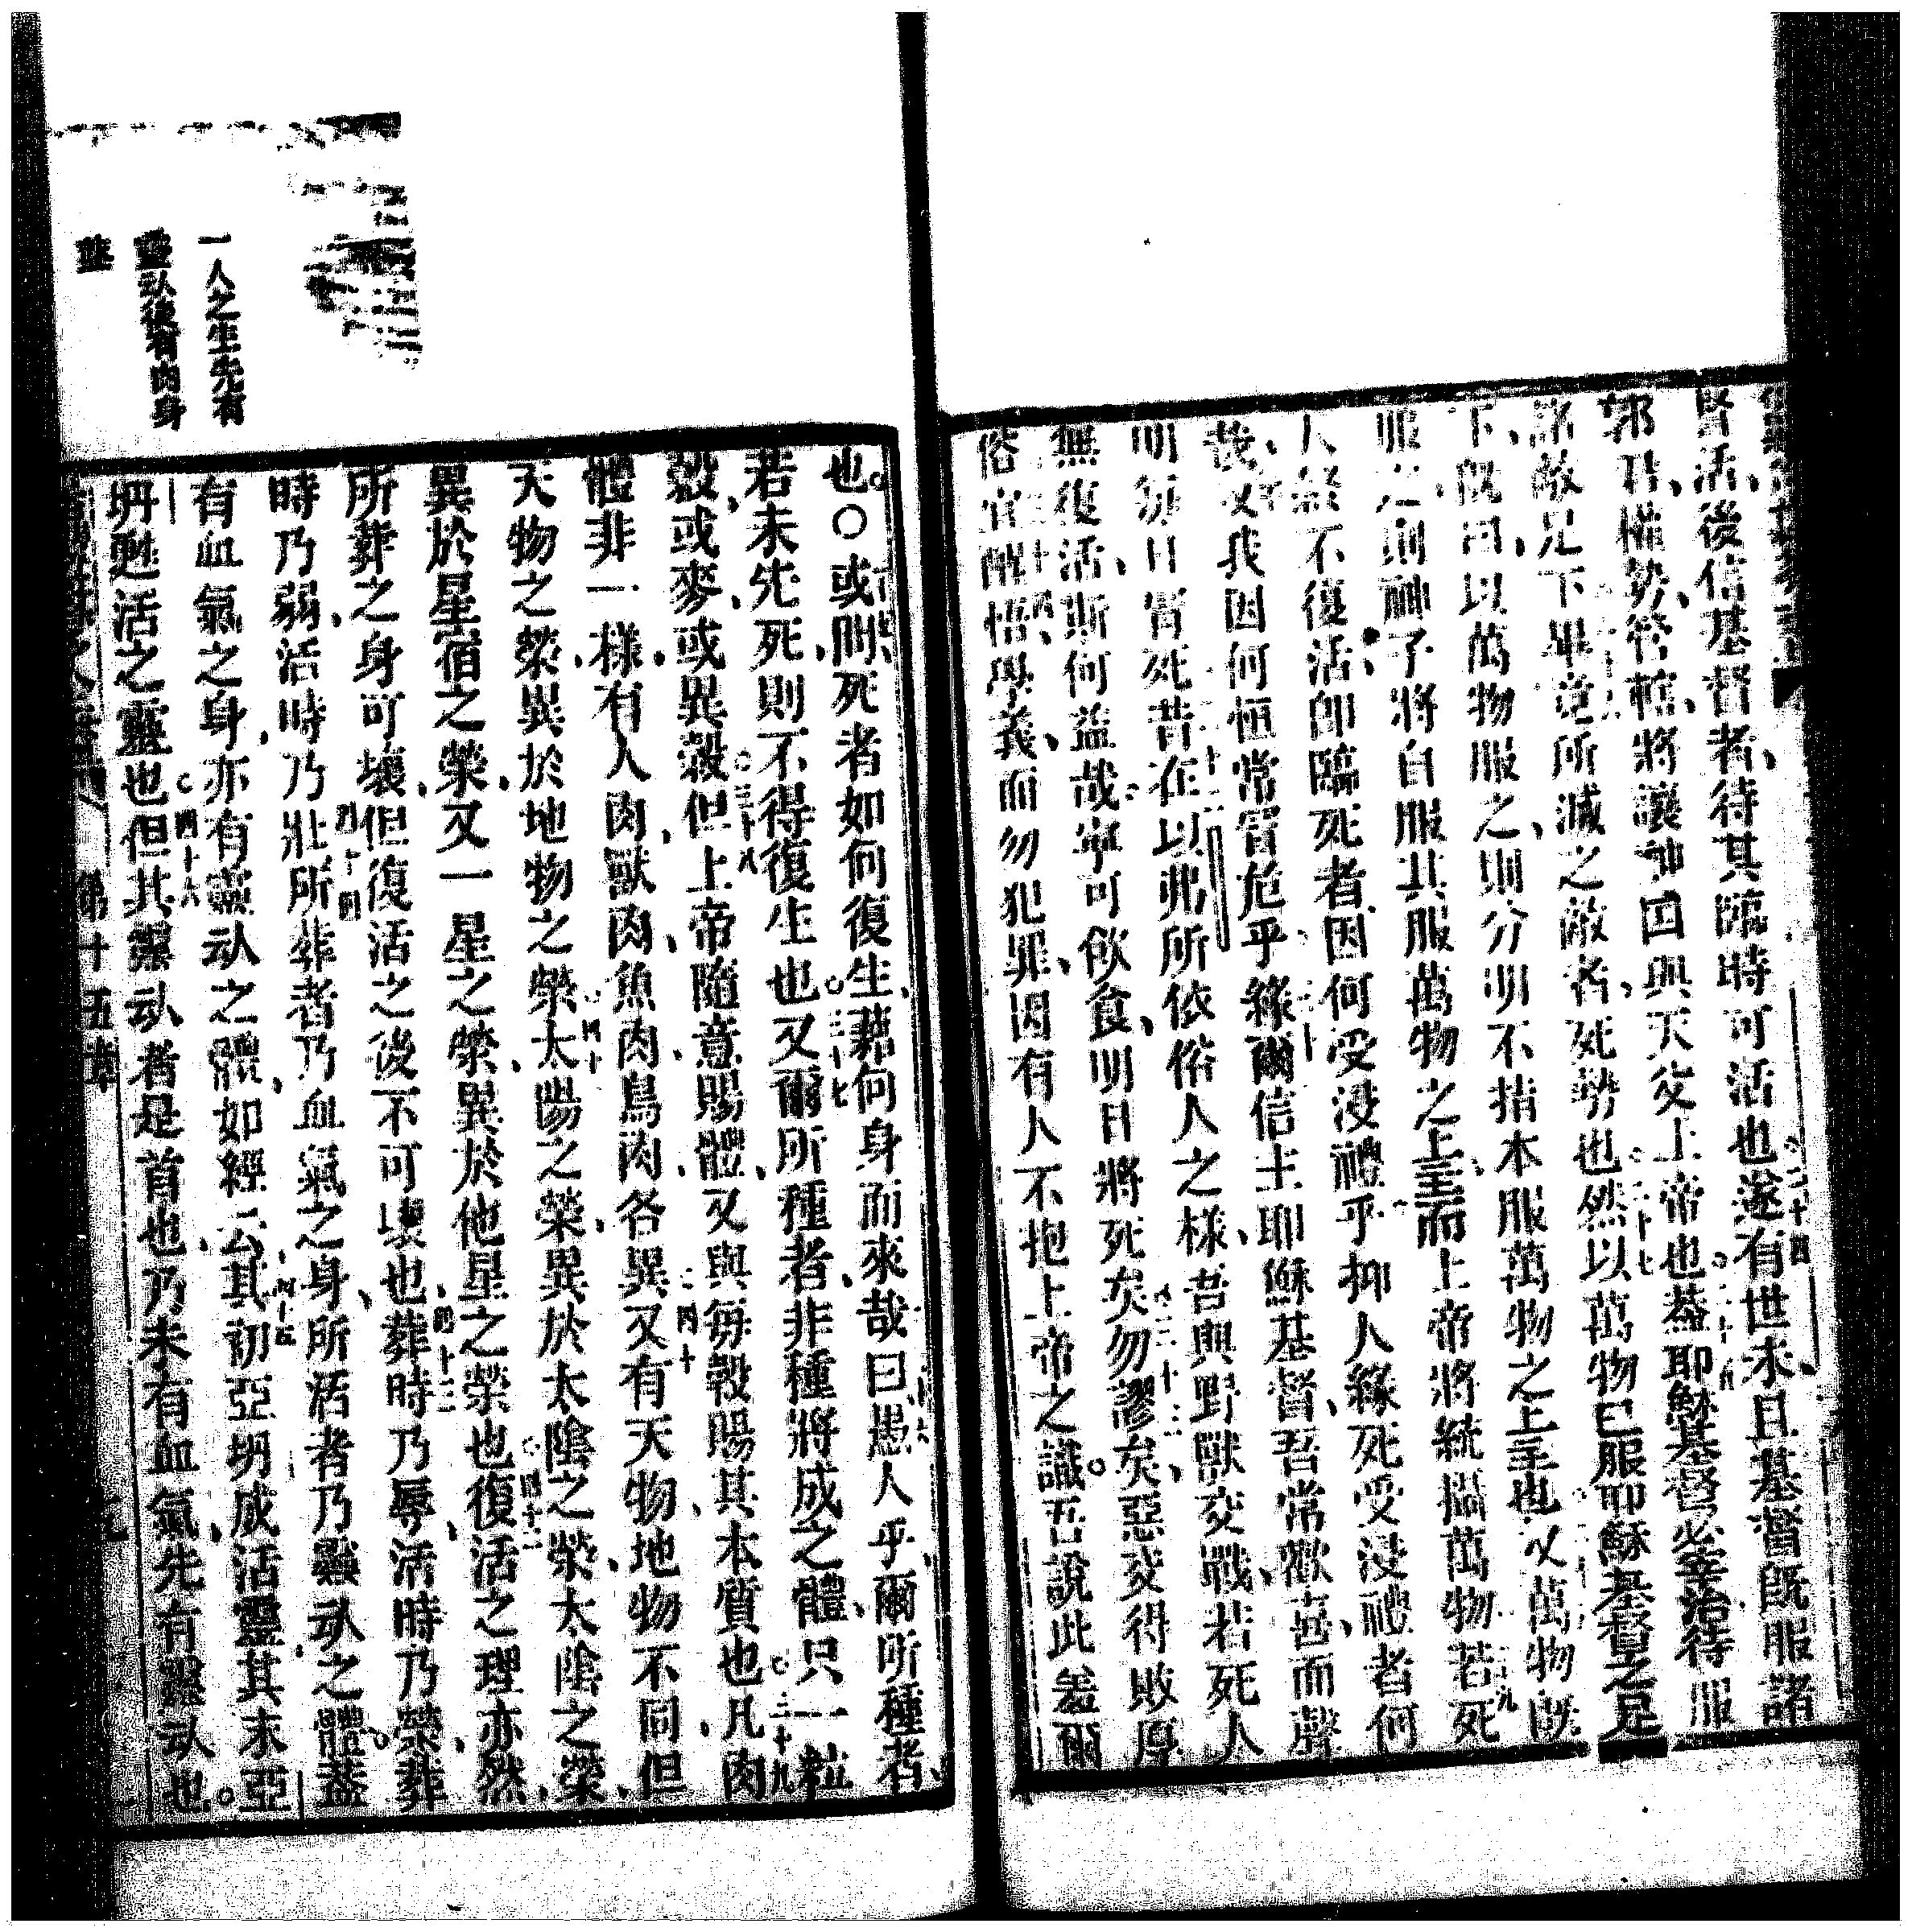 皆活後信基督者待其臨時可活也遂有世末且基督旣服諸
邦君權勢管轄將讓神囯與天父上帝也葢耶穌基督必宰治待服
諸敵足下畢竟所滅之敵者死勢也然以萬物已服耶穌基督之足
下旣曰以萬物服之則分明不指本服萬物之上至也又萬物旣
服之則神子將自服其服萬物之上至而上帝將統攝萬物若死
人終不復活卽臨死者因何受浸禮乎抑人緣死受浸禮者何
哉又我因何恒常冒危乎緣爾信主耶穌基督吾常歡喜而聲
明每日冐死昔在以弗所依俗人之樣吾與野獸交戰若死人
無復活斯何益哉寧可飲食明日將死矣勿謬矣惡交得敗厚
俗宜醒悟學義而勿犯罪因有人不抱上帝之識吾說此羞爾
也〇或問死者如何復生藉何身而來哉曰愚人乎爾所種者
若未先死則不得復生也又爾所種者非種將成之體只一粒
穀或麥或異穀但上帝隨意賜體又與每穀賜其本質也凡肉
體非一樣有人肉獸肉魚肉鳥肉各異又有天物地物不同但
天物之榮異於地物之榮太陽之榮異於太陰之榮太陰之榮
異於星宿之榮又一星之榮異於他星之榮也復活之理亦然
所葬之身可壞但復活之後不可壞也葬時乃辱活時乃榮葬
時乃弱活時乃壯所葬者乃血氣之身所活者乃靈動之體葢
有血氣之身亦有靈動之體如經云其初亞坍成活靈其末亞
坍甦活之靈也但其靈动者是首也乃未有血氣先有靈动也
第十五章
一人之生先有
靈动後有肉身